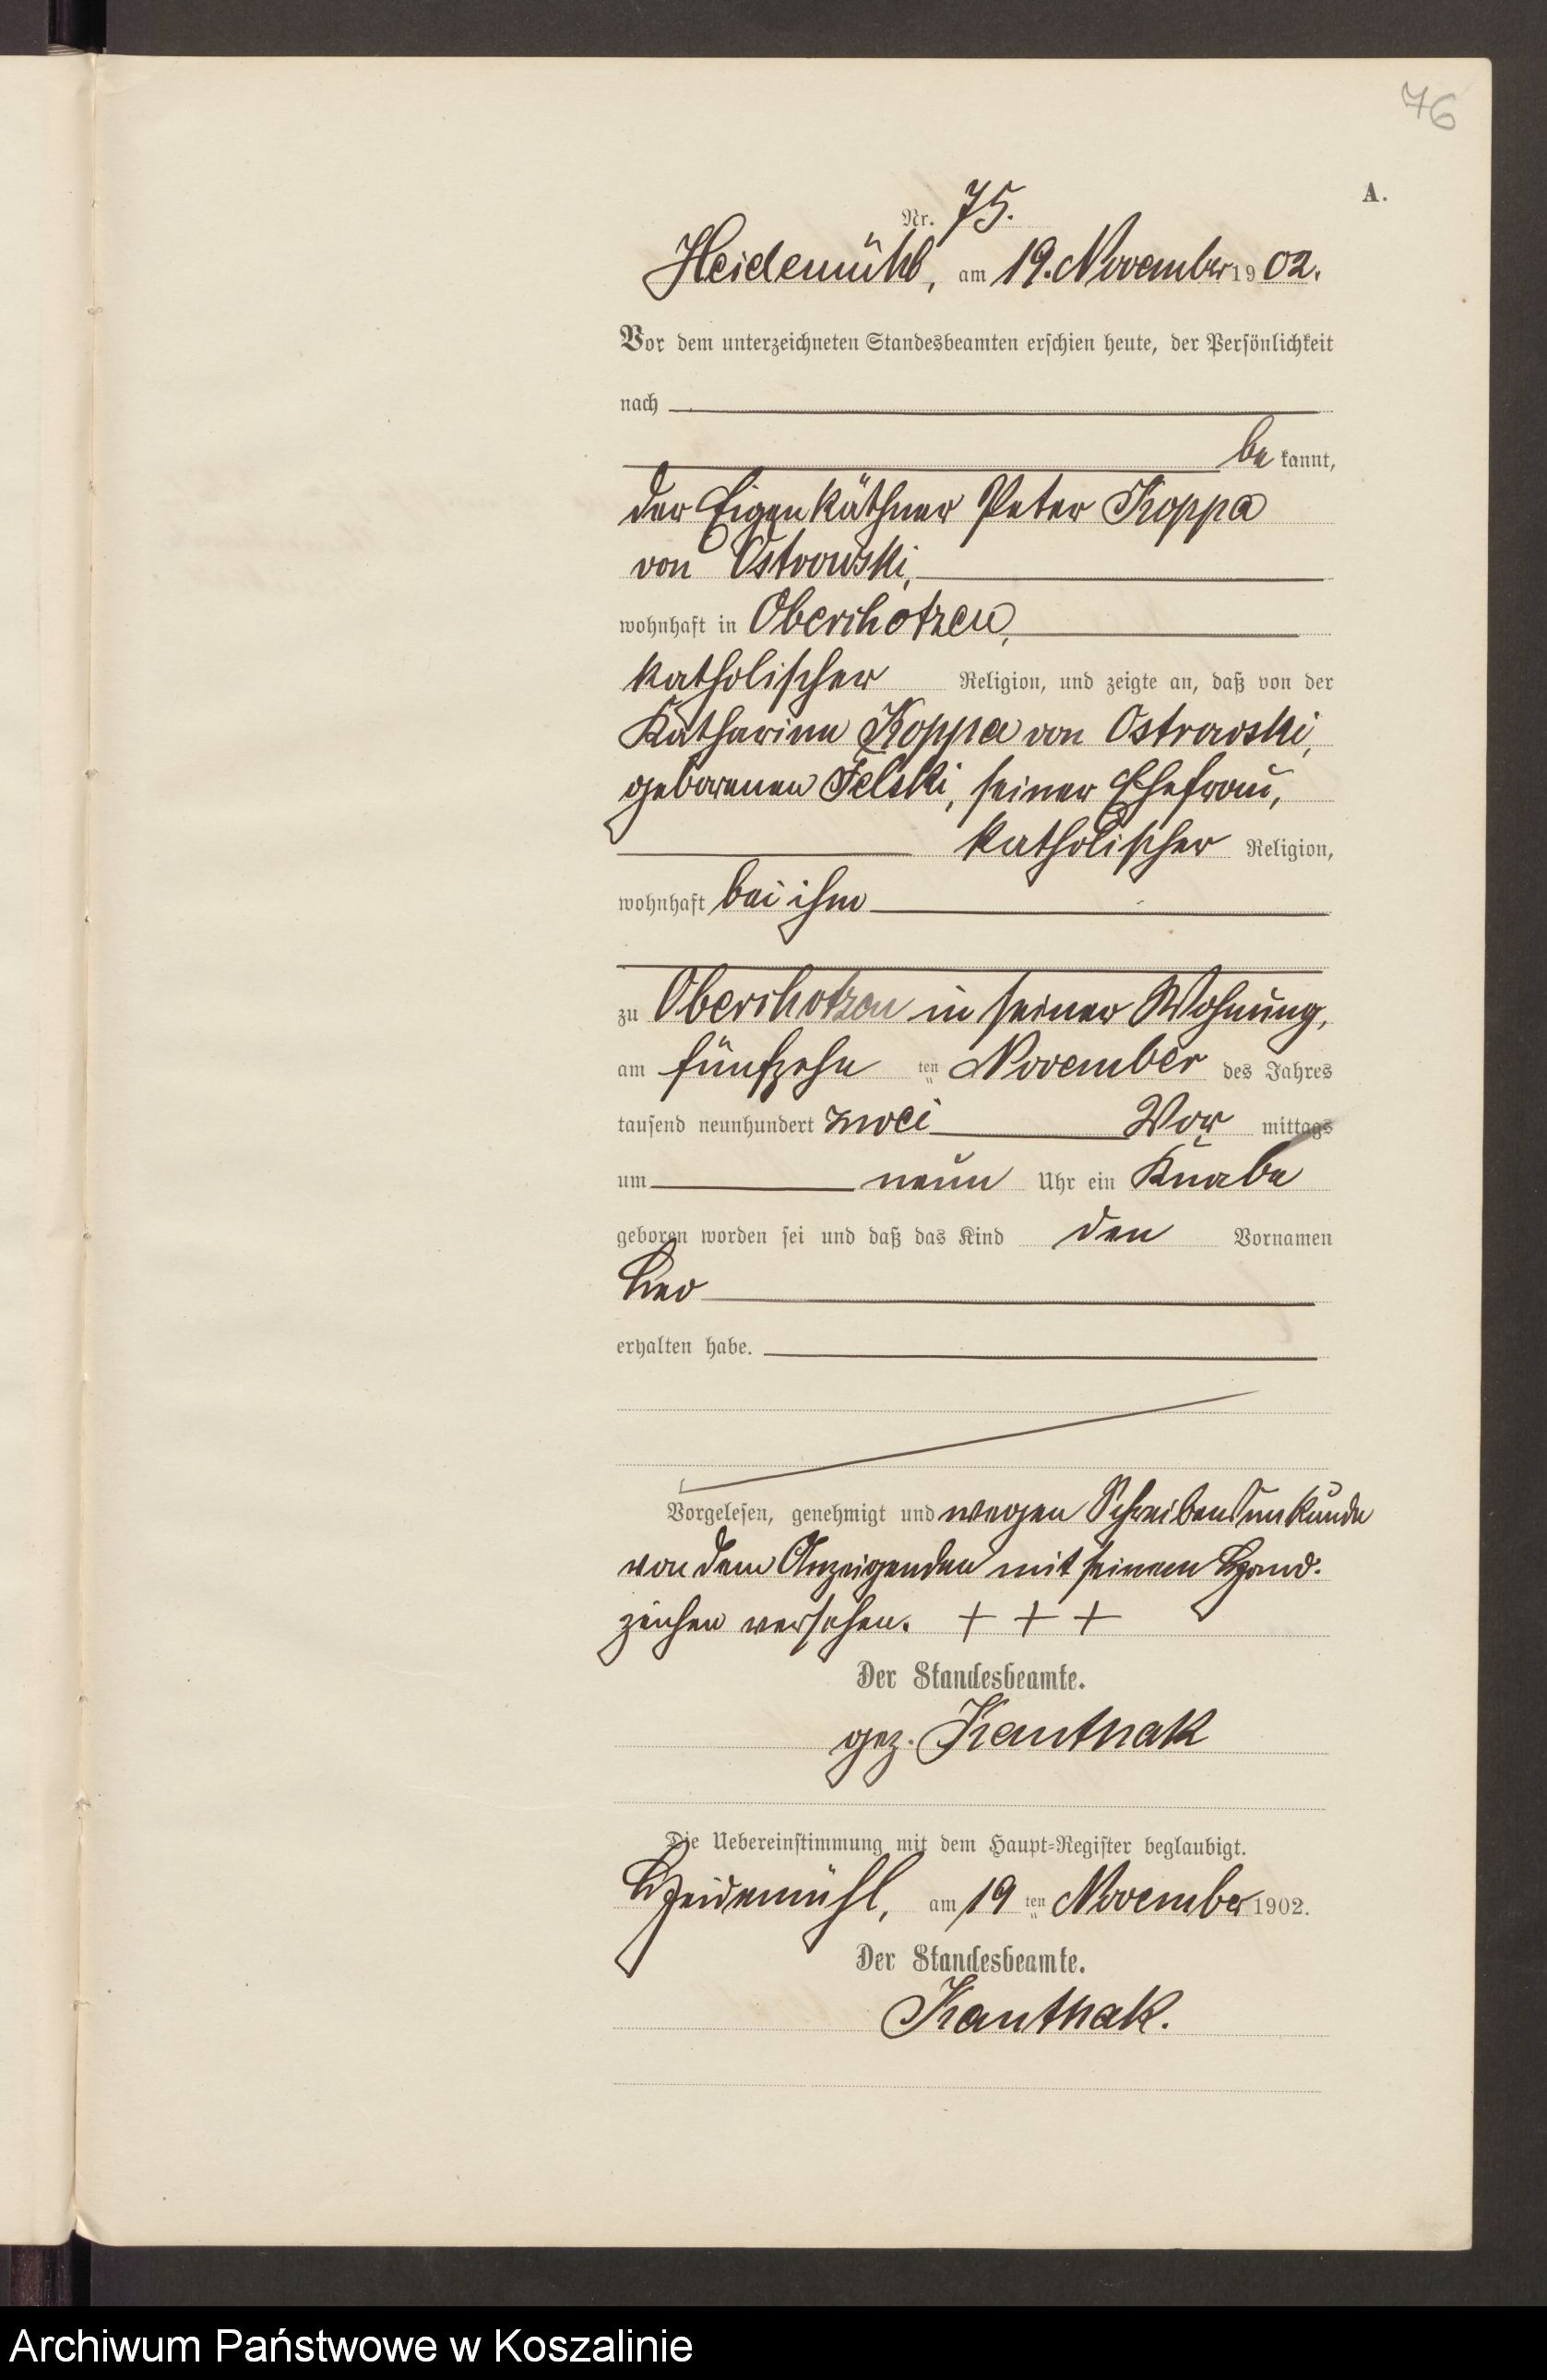 76
A.
Nr. 75.
Heidemühl, am 19. November 1902.
Vor dem unterzeichneten Standesbeamten erschien heute, der Persönlichkeit
nach
be kannt,
der Eigenkäthner Peter Koppa
von Ostrowski,
wohnhaft in Oberchotzen,
katholischer Religion, und zeigte an, daß von der
Katharina Koppa von Ostrowski,
geborenen Felski, seiner Ehefrau,
katholischer Religion,
wohnhaft bei ihm
zu Oberchotzen in seiner Wohnung,
am fünfzehn ten November des Jahres
tausend neunhundert zwei Vor mittags
um neun Uhr ein Knabe
geboren worden sei und daß das Kind den Vornamen
Leo
erhalten habe.
Vorgelesen, genehmigt und wegen Schreibensunkunde
von dem Anzeigenden mit seinem Hand-
zeichen versehen. + + +
Der Standesbeamte.
gez. Kanthak
Die Uebereinstimmung mit dem Haupt=Register beglaubigt.
Heidemühl, am 19 ten November 1902.
Der Standesbeamte.
Kanthak.
Archiwum Państwowe w Koszalinie